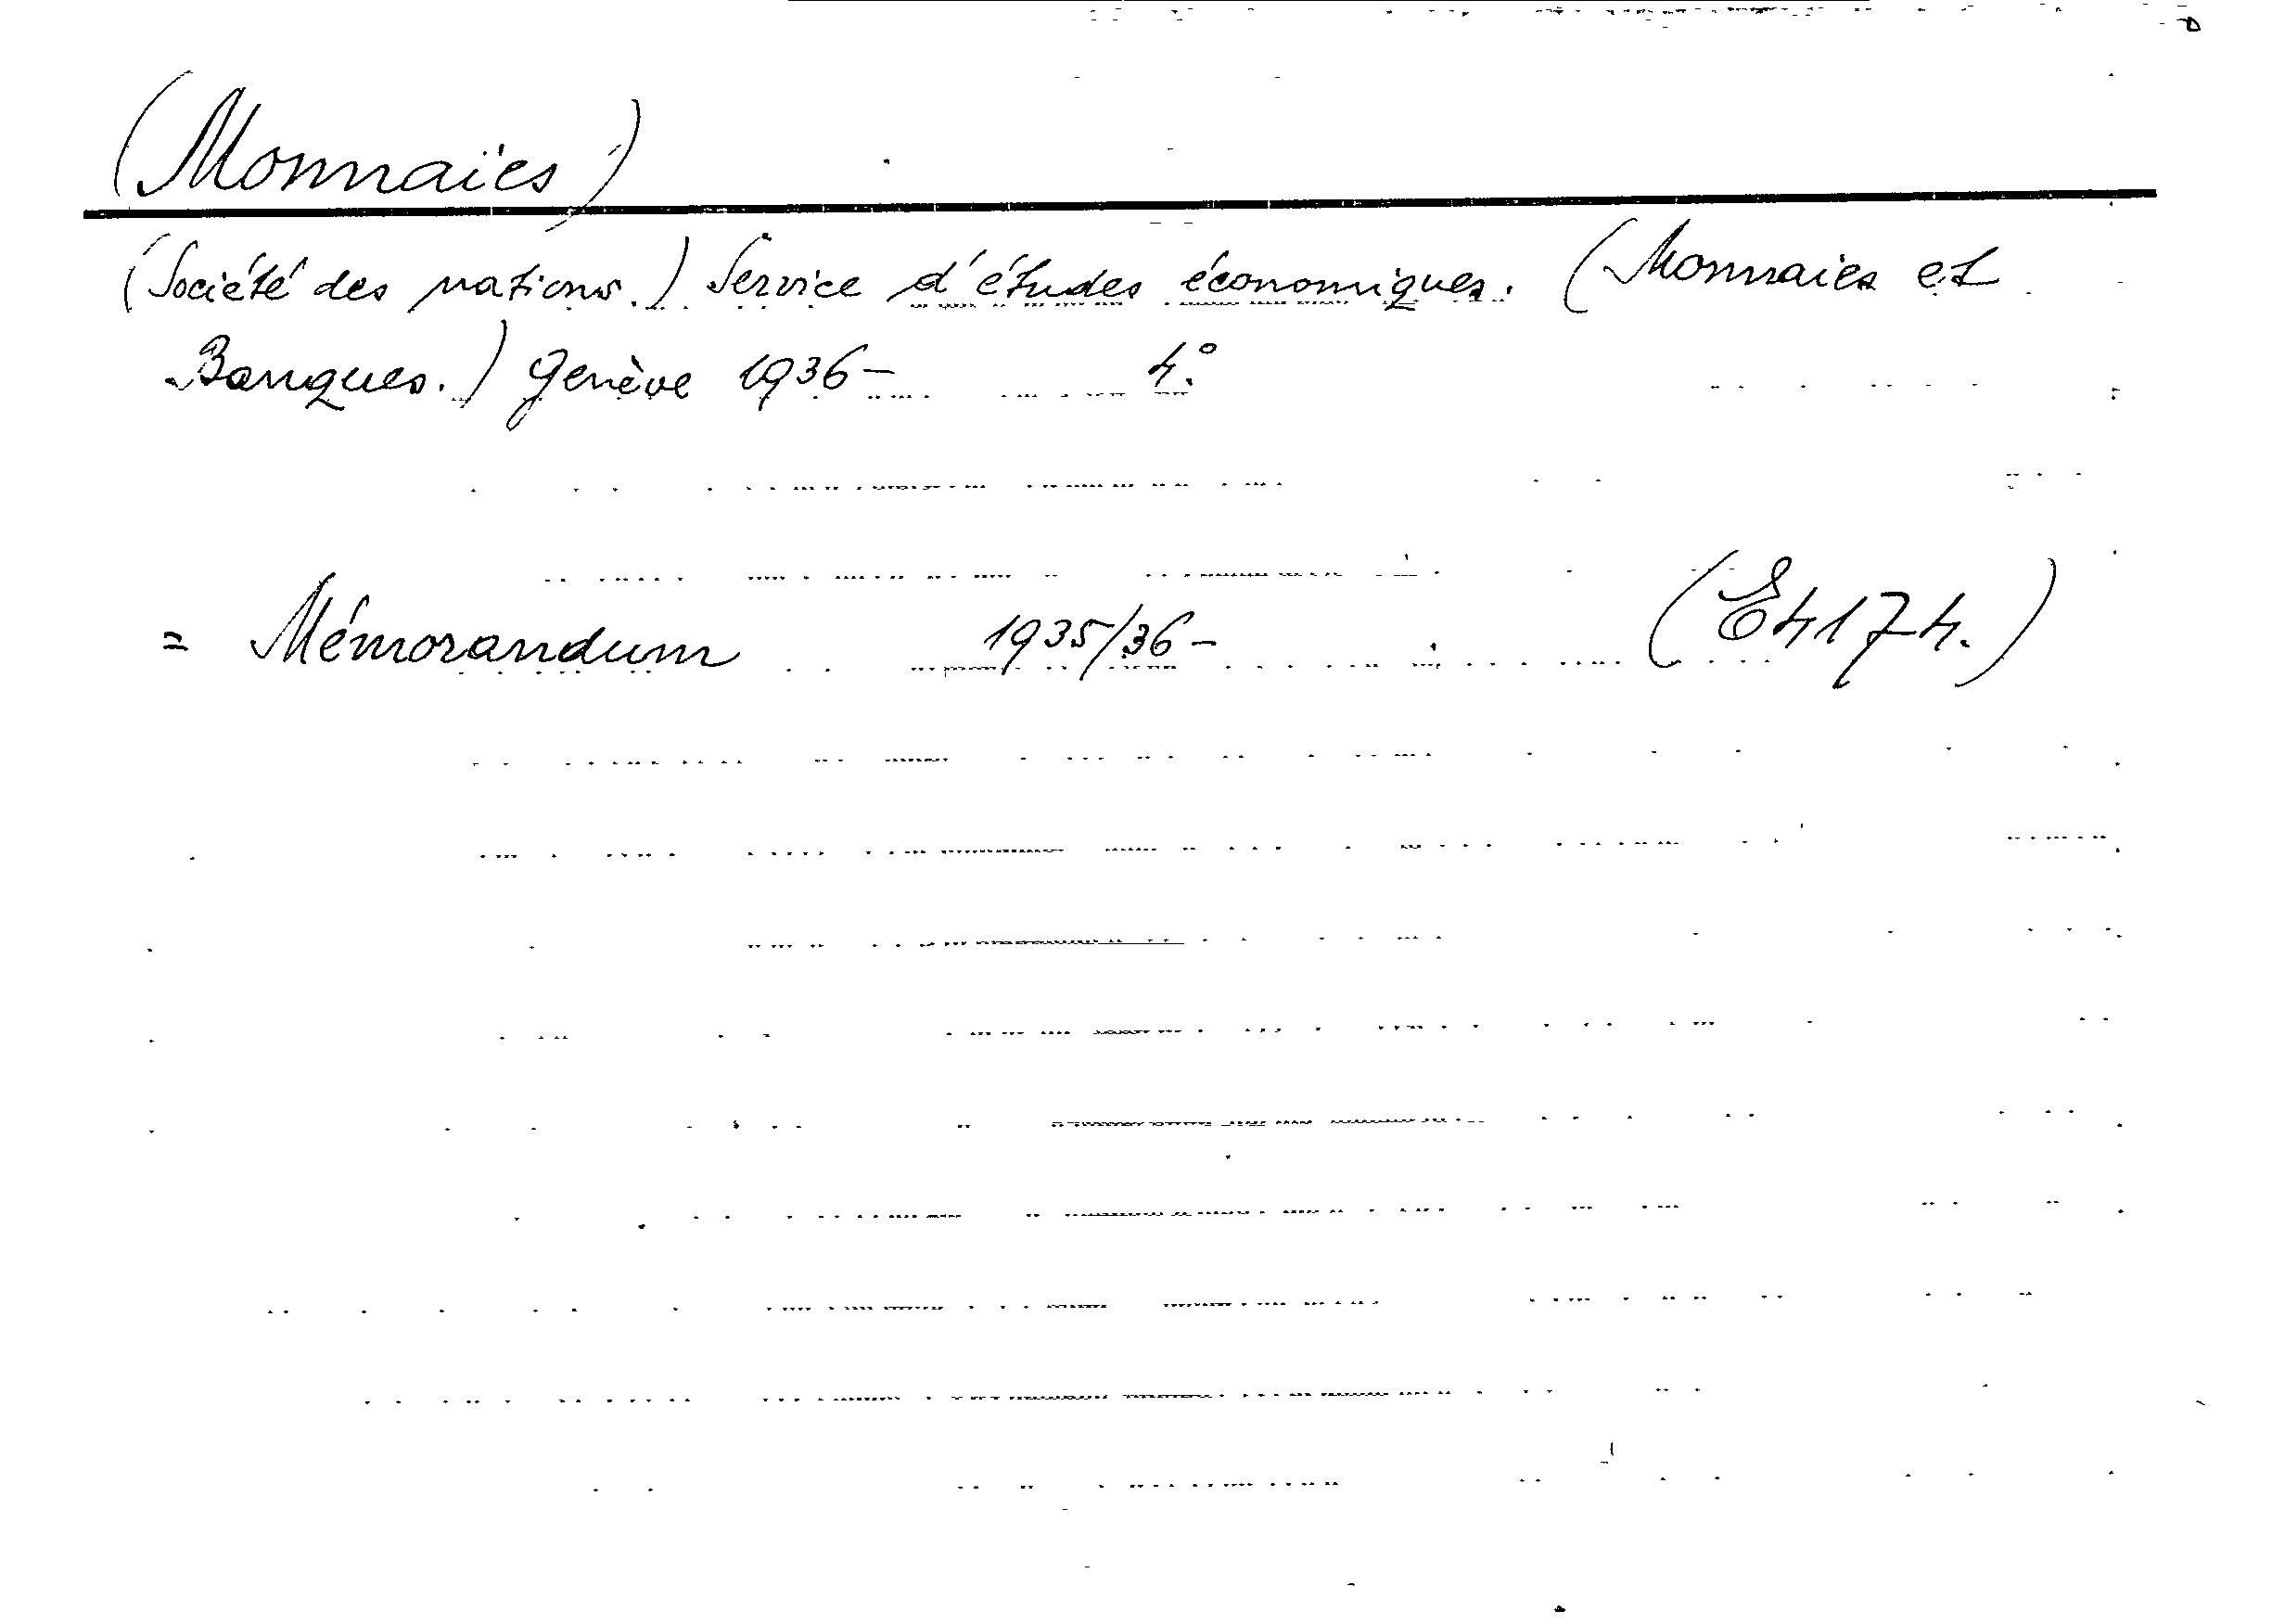 (Monnaies)
(Société des nations.) Service d'études économiques. (Monnaies et
Banques.) Genève 1936- 4°.
= Mémorandum 1935/36- (E4174.)